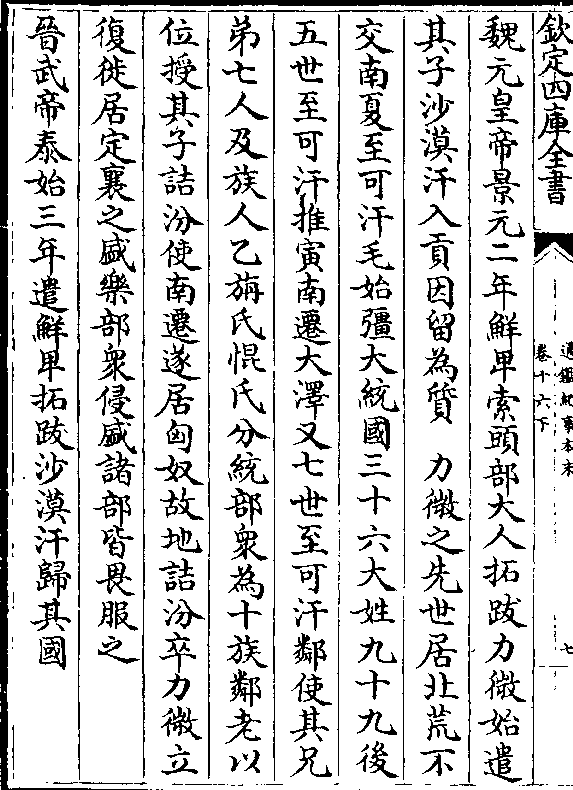 欽定四庫全書
通鑑紀事本末
卷十六下
七
魏元皇帝景元二年鮮卑索頭部大人拓跋力微始遣
其子沙漠汗入貢因留為質　力微之先世居北荒不
交南夏至可汗毛始彊大統國三十六大姓九十九後
五世至可汗推寅南遷大澤又七世至可汗鄰使其兄
弟七人及族人乙旃氏惃氏分統部衆為十族鄰老以
位授其子詰汾使南遷遂居匈奴故地詰汾卒力微立
復徙居定襄之盛樂部衆侵盛諸部皆畏服之
晉武帝泰始三年遣鮮卑拓跋沙漠汗歸其國